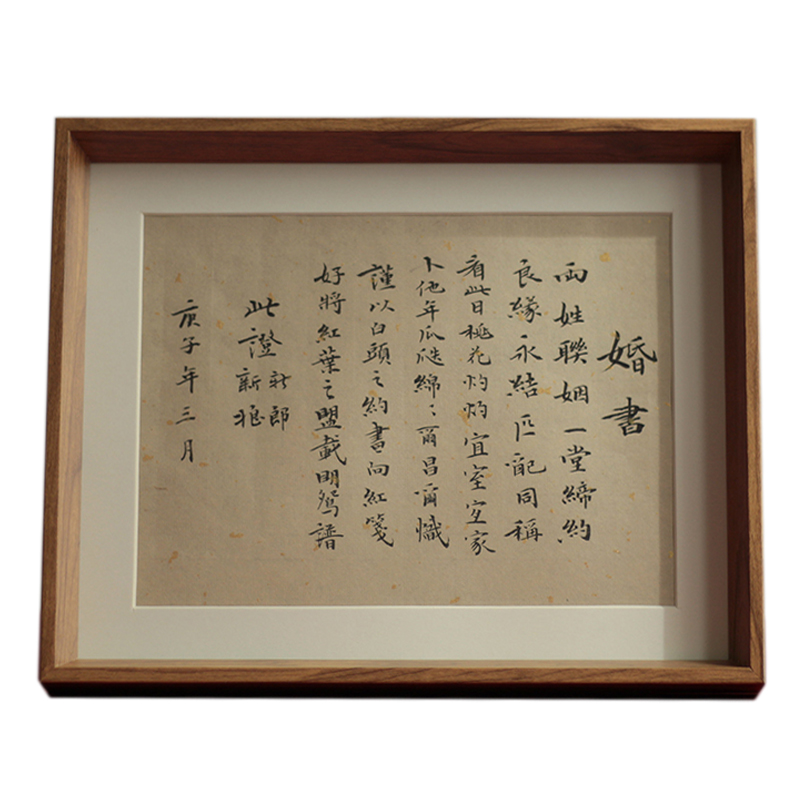 婚書
兩姓聯姻一堂締約
良緣永結匹配同稱
看此日桃花灼灼宜室宜家
卜他年瓜瓞綿〻爾昌爾熾
謹以白頭之約書向紅箋
好將紅葉之盟載明鴛譜
此證
新郎
新娘
庚子年三月